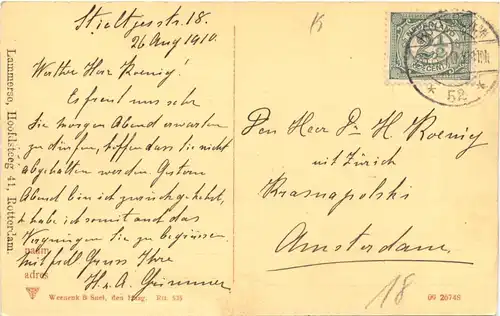 Stieltjesstr. 18.
26 Aug 1910.
Werther Herr Koenig!
Es freut uns sehr
Sie morgen Abend erwarten
zu dürfen, hoffen dass Sie nicht
abgehalten werden. Gestern
Abend bin ich zurückgekehrt,
& habe ich somit auch das
Vergnügen Sie zu begrüssen.
Mit frdl. Gruss Ihre
H. & A.
naam
adres
Lammerse, Hoofdsteeg 41, Rotterdam.
Weenenk & Snel, den Haag. Rtt. 535
K
NEDERLAND
2½
CENT
* 52 *
Den Heer Dr H. Koenig
uit Zürich
Krasnapolski
Amsterdam.
18
09 26746